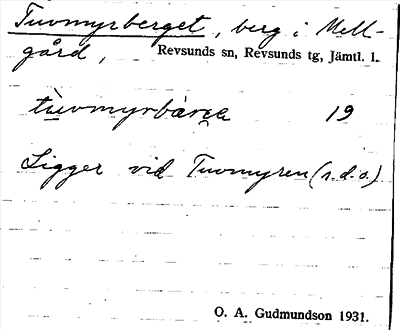 Tuvmyrberget, berg i Mell-
gård, Revsunds sn, Revsunds tg, Jämtl. l.
tùvmyrbàrɛa 19
Ligger vid Tuvmyren (s.d.o.)
O. A. Gudmundson 1931.